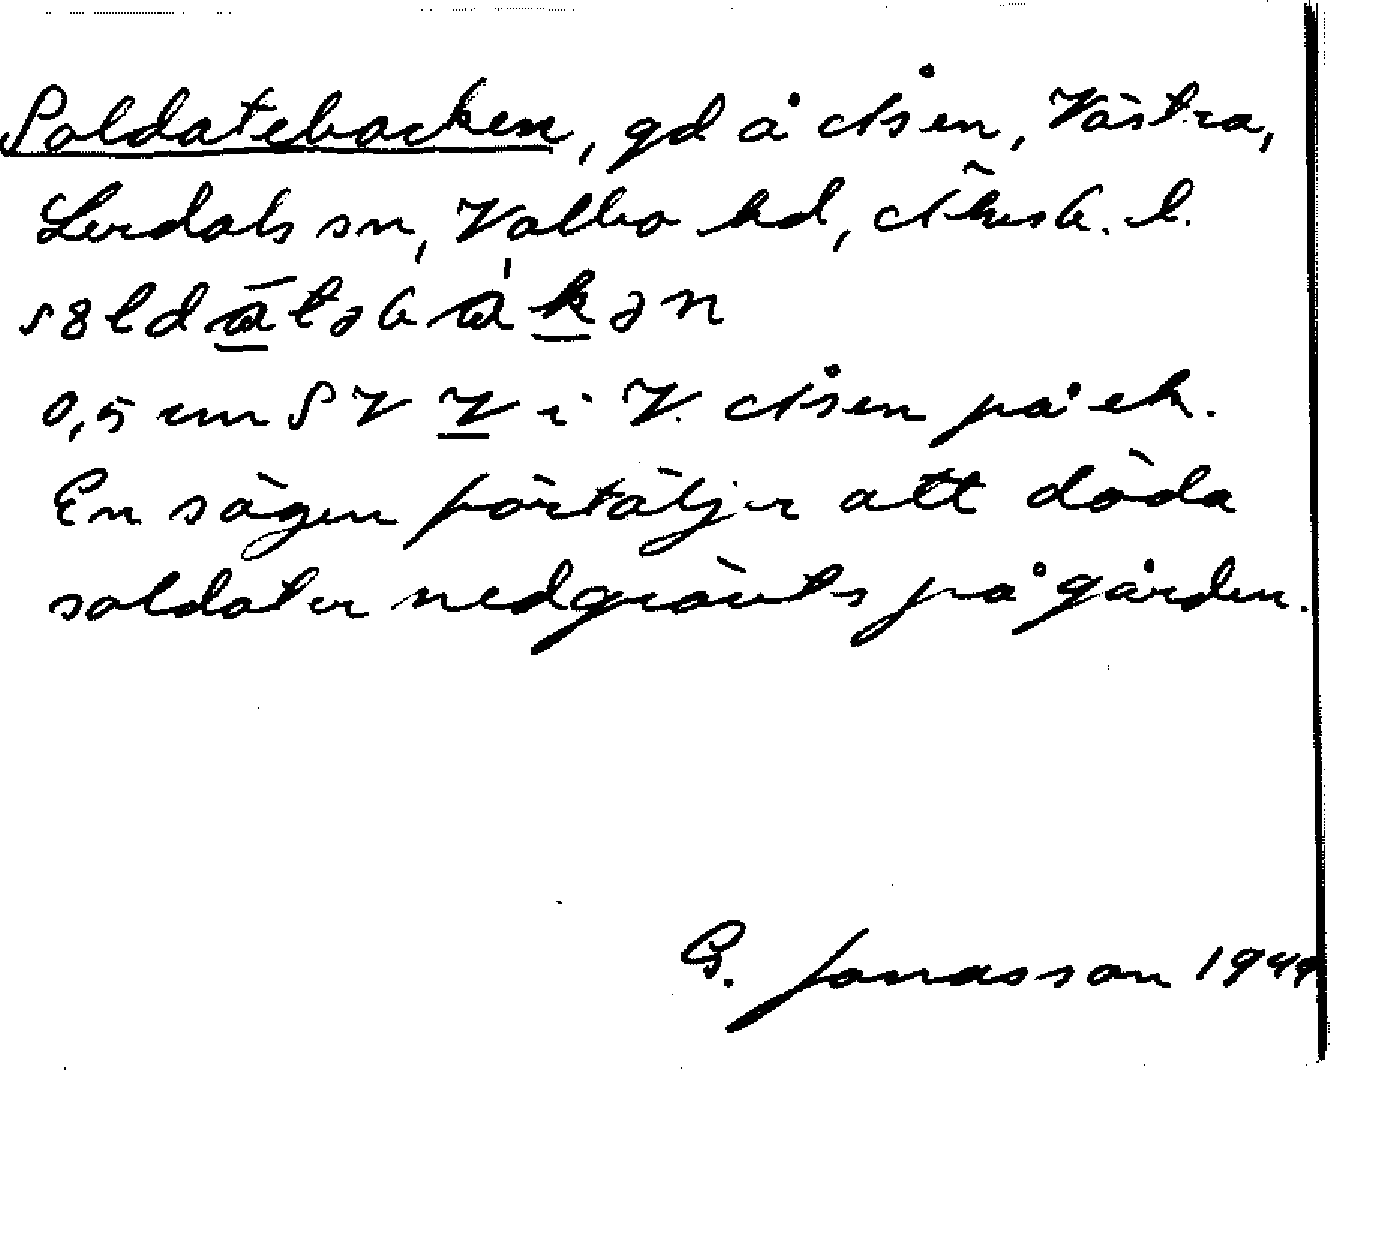 Soldatebacken, gd å Åsen, Västra,
Lerdals sn, Valbo hd, Älvsb. l.
0,5 cm S V V i V. Åsen på ek.
En sägen förtäljer att döda
soldater nedgrävts på gården.
G. Jonasson 1944